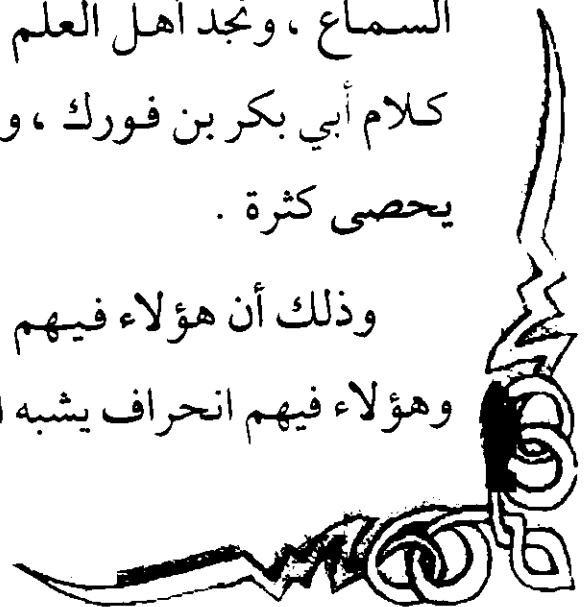 السماع ، ونجد أهل العلم
كلام أبي بكر بن فورك ، و
يحصى كثرة .
وذلك أن هؤلاء فيهم
وهؤلاء فيهم انحراف يشبه ا